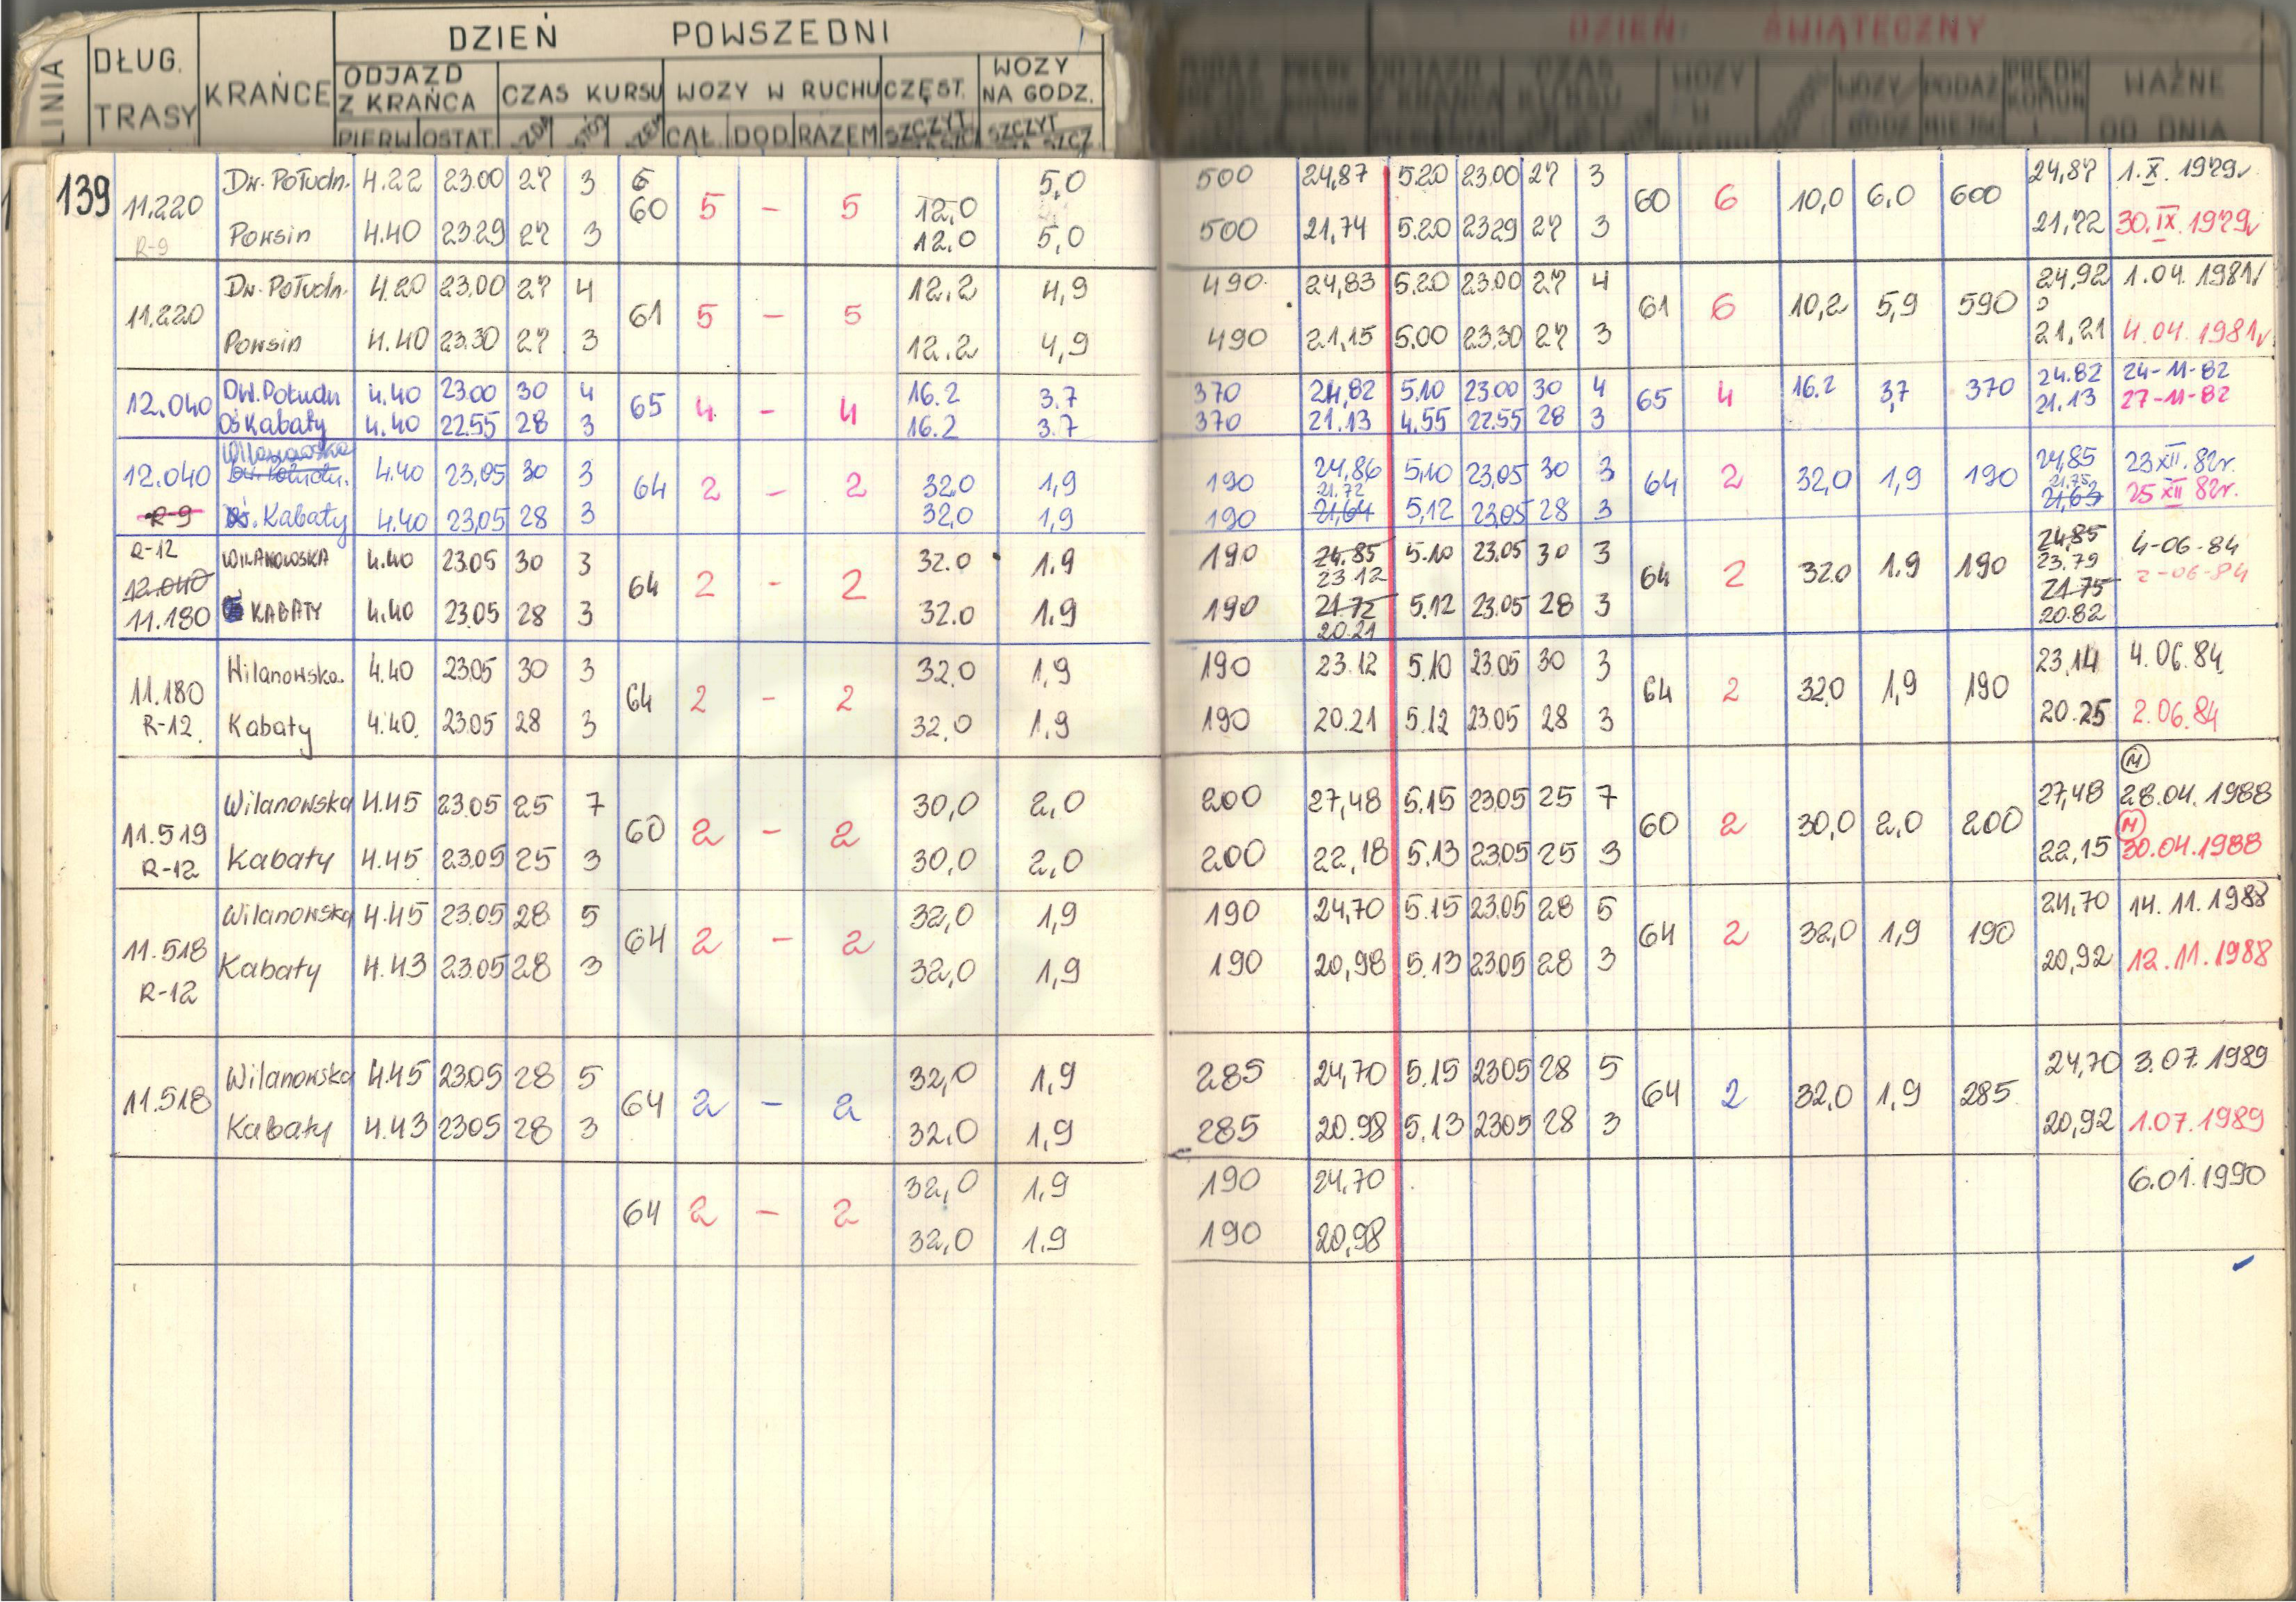 DZIEŃ POWSZEDNI DZIEŃ ŚWIĄTECZNY
LINIA DŁUG. TRASY KRAŃCE ODJAZD Z KRAŃCA CZAS KURSU WOZY W RUCHU CZĘST. WOZY NA GODZ. WAŻNE OD DNIA
PIERW OSTAT. CAŁ. DOD RAZEM SZCZYT SZCZYT
139 Dw. Połudn. 4.22 23.00 27 3 6 5,0 500 24,87 5.20 23.00 27 3 24,87 1.X.1979r
11.220 60 5 – 5 12,0 60 6 10,0 6,0 600
R-9 Powsin 4.40 23.29 27 3 12.0 5,0 500 21,74 5.20 23.29 27 3 21,72 30.IX.1979r
Dw. Połudn. 4.20 23.00 27 4 12.2 4,9 490 24,83 5.20 23.00 27 4 24,92 1.04.1981r
11.220 61 5 – 5 61 6 10,2 5,9 590
Powsin 4.40 23.30 27 3 12.2 4,9 490 21,15 5.00 23.30 27 3 21,21 4.04.1981r
Dw. Połudn 4.40 23.00 30 4 16.2 3.7 370 24,82 5.10 23.00 30 4 24.82 24-11-82
12.040 65 4 – 4 65 4 16.2 3,7 370
Oś Kabaty 4.40 22.55 28 3 16.2 3.7 370 21.13 4.55 22.55 28 3 21.13 27-11-82
Wilanowska
12.040 Dw. Połudn. 4.40 23,05 30 3 32,0 1,9 190 24,86 5,10 23,05 30 3 24,85 23 XII. 82r.
64 2 – 2 21.72 64 2 32,0 1,9 190 21.75
R-9 Oś. Kabaty 4.40 23,05 28 3 32,0 1,9 190 21,64 5,12 23,05 28 3 21,63 25 XII 82r.
R-12 WILANOWSKA 4.40 23.05 30 3 32.0 1.9 190 24.85 5.10 23.05 30 3 24,85 4-06-84
12.040 64 2 – 2 23.12 64 2 32.0 1.9 190 23.79 2-06-84
11.180 KABATY 4.40 23.05 28 3 32.0 1.9 190 21.72 5.12 23.05 28 3 21.75
20.21 20.82
Wilanowska 4.40 23.05 30 3 32.0 1,9 190 23.12 5.10 23.05 30 3 23,14 4.06.84
11.180 64 2 – 2 64 2 32,0 1,9 190
R-12. Kabaty 4.40. 23.05 28 3 32,0 1,9 190 20.21 5.12 23.05 28 3 20.25 2.06.84
M
Wilanowska 4.45 23.05 25 7 30,0 2,0 200 27,48 5.15 23.05 25 7 27,48 28.04.1988
11.519 60 2 – 2 60 2 30,0 2,0 200 M
R-12 Kabaty 4.45 23.05 25 3 30,0 2,0 200 22,18 5.13 23.05 25 3 22,15 30.04.1988
Wilanowska 4.45 23.05 28 5 32,0 1,9 190 24,70 5.15 23.05 28 5 24,70 14.11.1988
11.518 64 2 – 2 64 2 32,0 1,9 190
Kabaty 4.43 23.05 28 3 32,0 1,9 190 20,98 5.13 23.05 28 3 20,92 12.11.1988
R-12
Wilanowska 4.45 23.05 28 5 32,0 1,9 285 24,70 5.15 23.05 28 5 24,70 3.07.1989
11.518 64 2 – 2 64 2 32,0 1,9 285
Kabaty 4.43 23.05 28 3 32,0 1,9 285 20.98 5.13 23.05 28 3 20,92 1.07.1989
32,0 1,9 190 24,70 6.01.1990
64 2 – 2
32,0 1,9 190 20,98